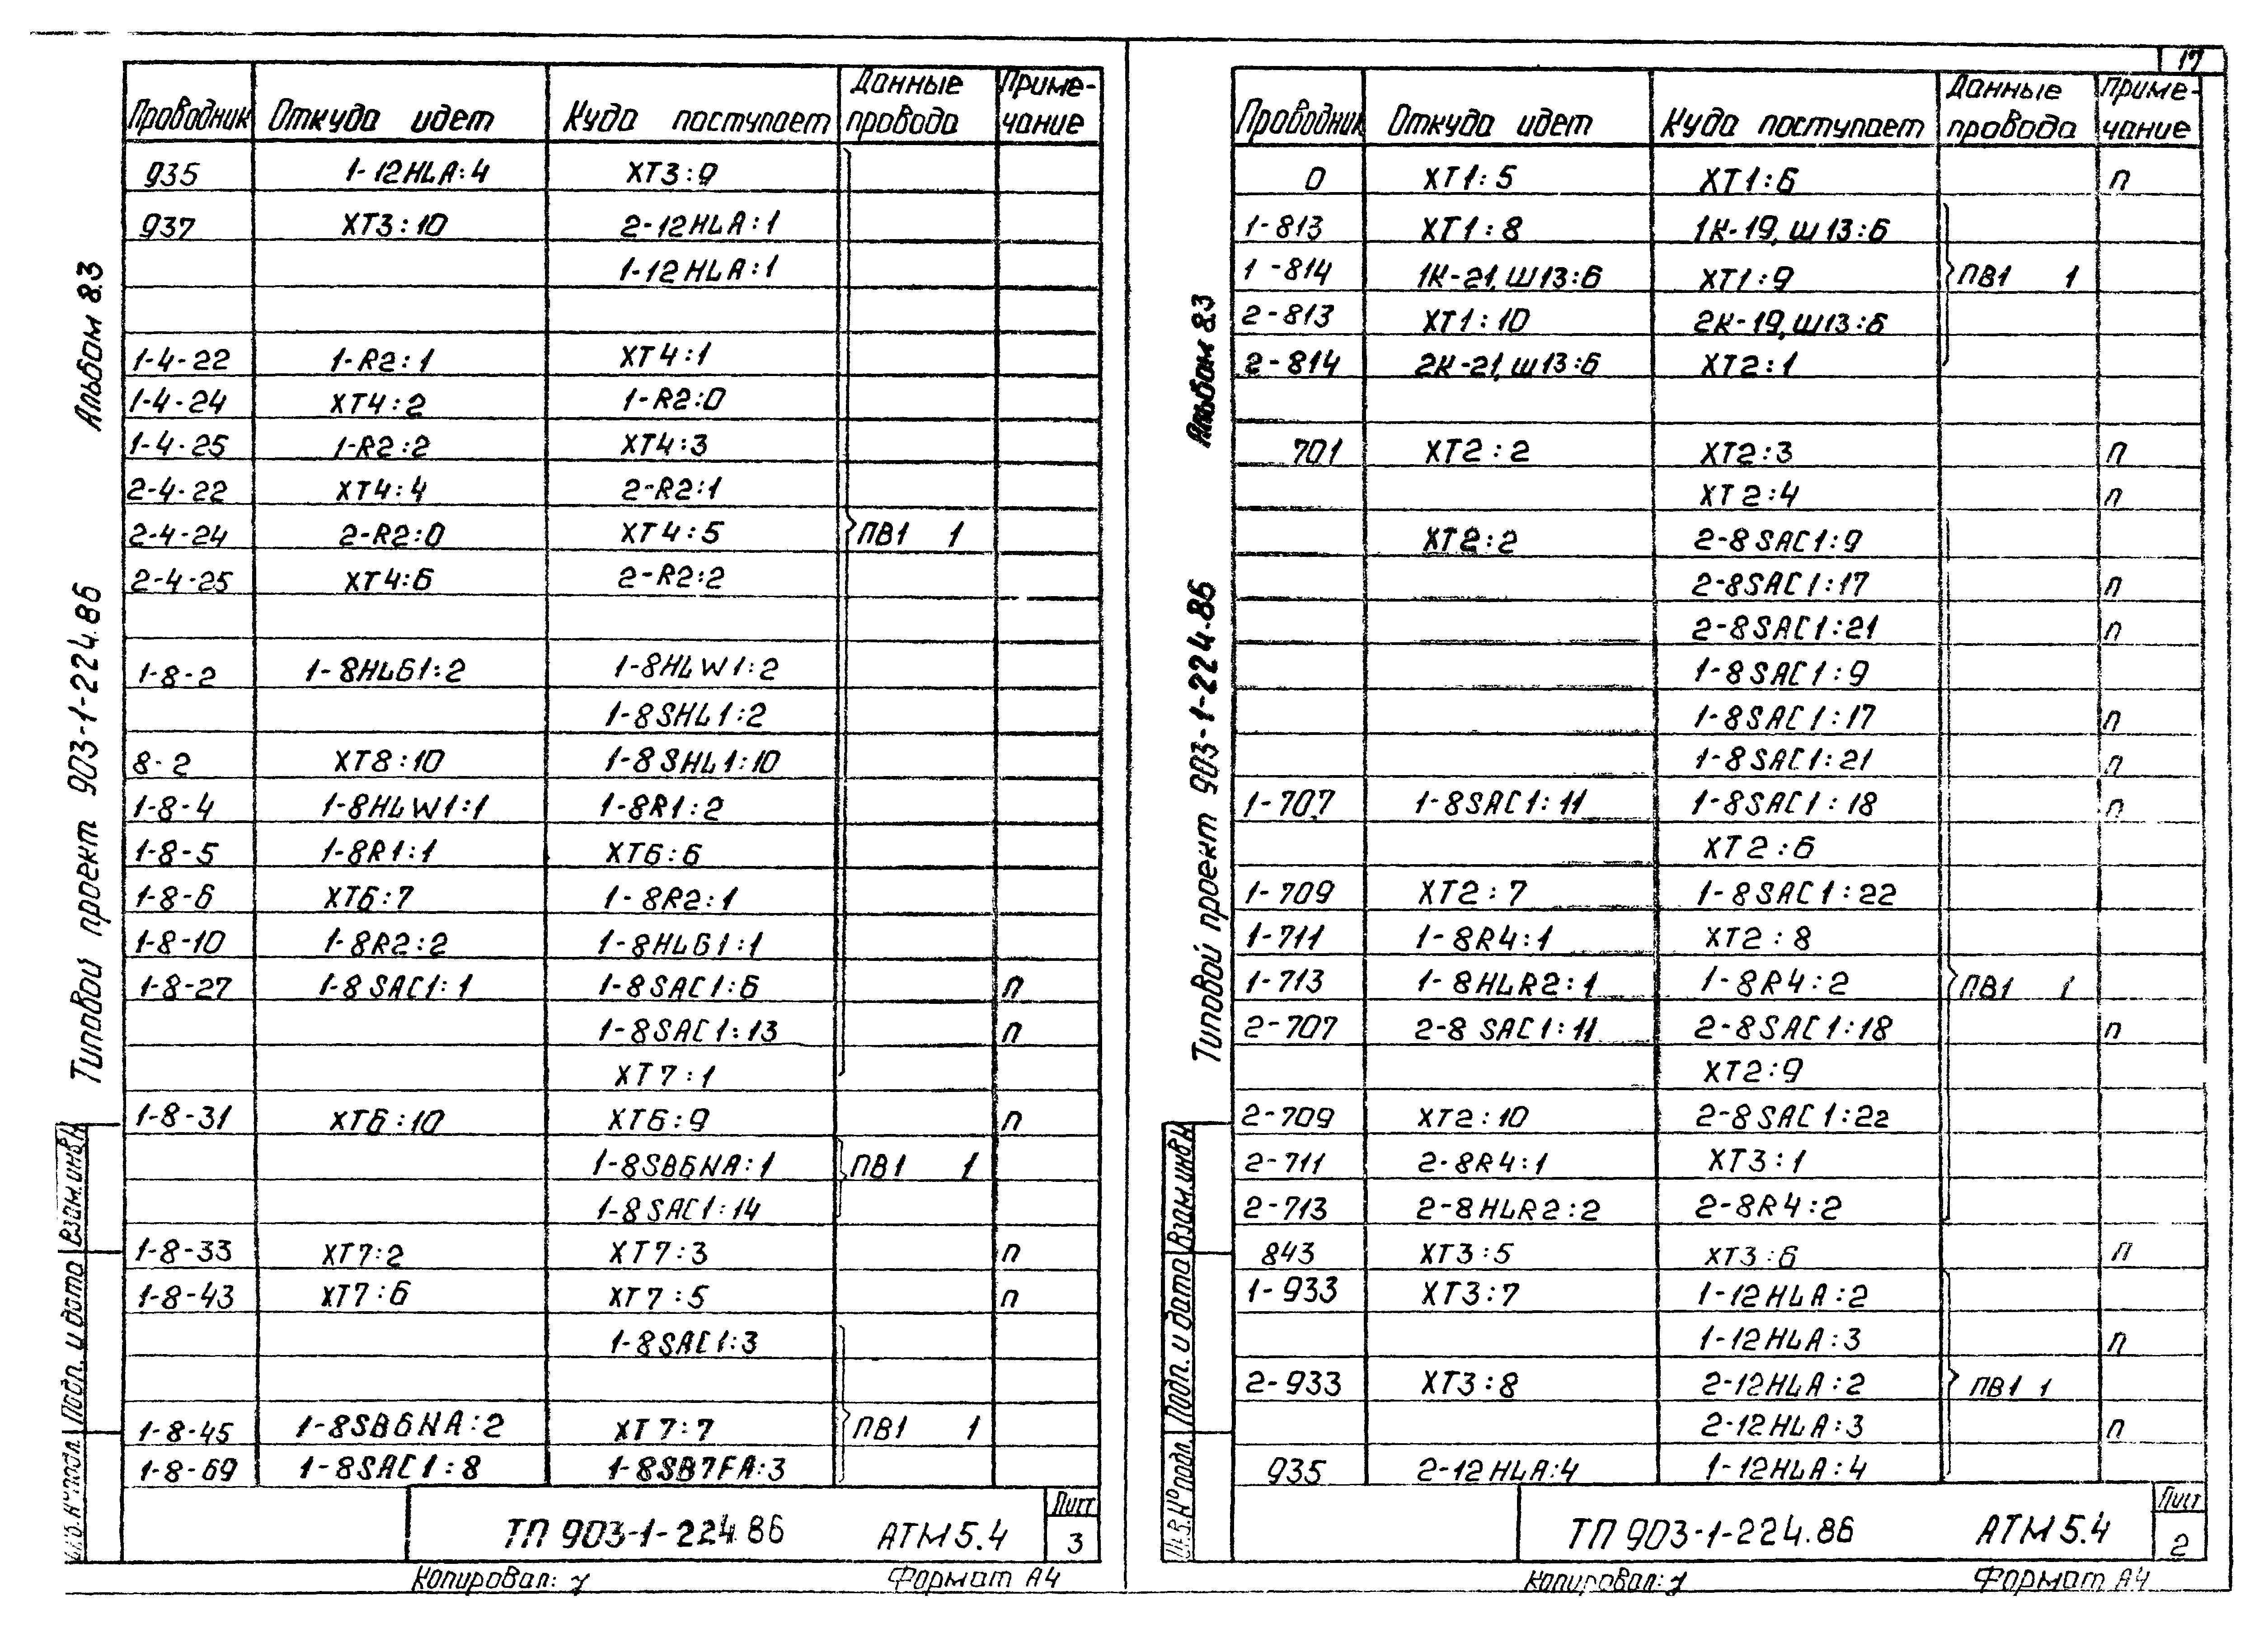 17
Альбом 8.3
Типовой проект 903-1-224.86
Проводник Откуда идет Куда поступает Данные провода Приме-чание
935 1-12HLA:4 XT3:9
937 XT3:10 2-12HLA:1
1-12HLA:1
1-4-22 1-R2:1 XT4:1
1-4-24 XT4:2 1-R2:0
1-4-25 1-R2:2 XT4:3
2-4-22 XT4:4 2-R2:1
2-4-24 2-R2:0 XT4:5 ПВ1 1
2-4-25 XT4:6 2-R2:2
1-8-2 1-8HLG1:2 1-8HLW1:2
1-8SHL1:2
8-2 XT8:10 1-8SHL1:10
1-8-4 1-8HLW1:1 1-8R1:2
1-8-5 1-8R1:1 XT6:6
1-8-6 XT6:7 1-8R2:1
1-8-10 1-8R2:2 1-8HLG1:1
1-8-27 1-8SAC1:1 1-8SAC1:6 п
1-8SAC1:13 п
XT7:1
1-8-31 XT6:10 XT6:9 п
1-8SB6HA:1 ПВ1 1
1-8SAC1:14
1-8-33 XT7:2 XT7:3 п
1-8-43 XT7:6 XT7:5 п
1-8SAC1:3
1-8-45 1-8SB6HA:2 XT7:7 ПВ1 1
1-8-69 1-8SAC1:8 1-8SB7FA:3
Взам.инв.N
Подп. и дата
Инв.N°подл.
ТП 903-1-224.86 АТМ5.4 Лист 3
Копировал: Формат А4
Альбом 8.3
Типовой проект 903-1-224.86
Проводник Откуда идет Куда поступает Данные провода Приме-чание
0 XT1:5 XT1:6 п
1-813 XT1:8 1К-19,Ш13:6
1-814 1К-21,Ш13:6 XT1:9 ПВ1 1
2-813 XT1:10 2К-19,Ш13:6
2-814 2К-21,Ш13:6 XT2:1
701 XT2:2 XT2:3 п
XT2:4 п
XT2:2 2-8SAC1:9
2-8SAC1:17 п
2-8SAC1:21 п
1-8SAC1:9
1-8SAC1:17 п
1-8SAC1:21 п
1-707 1-8SAC1:11 1-8SAC1:18 п
XT2:6
1-709 XT2:7 1-8SAC1:22
1-711 1-8R4:1 XT2:8
1-713 1-8HLR2:1 1-8R4:2 ПВ1 1
2-707 2-8SAC1:11 2-8SAC1:18 п
XT2:9
2-709 XT2:10 2-8SAC1:22
2-711 2-8R4:1 XT3:1
2-713 2-8HLR2:2 2-8R4:2
843 XT3:5 XT3:6 п
1-933 XT3:7 1-12HLA:2
1-12HLA:3 п
2-933 XT3:8 2-12HLA:2 ПВ1 1
2-12HLA:3 п
935 2-12HLA:4 1-12HLA:4
Взам.инв.N
Подп. и дата
Инв.N°подл.
ТП 903-1-224.86 АТМ5.4 Лист 2
Копировал: Формат А4